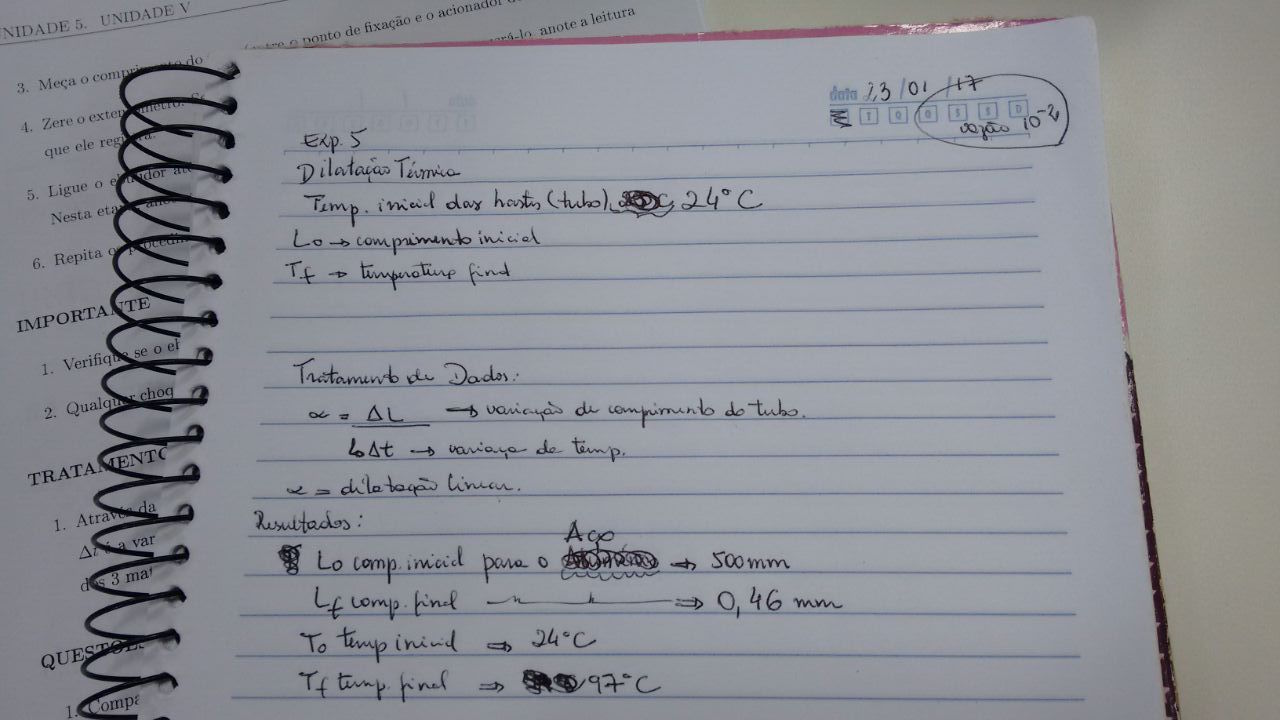 UNIDADE 5. UNIDADE V
o ponto de fixação e o acionador
anote a leitura
3. Meça o comprimento do
4. Zere o
que ele
5. Ligue o
Nesta
6. Repita
IMPORTANTE
1. Verifique se o
2. Qualquer
TRATAMENTO
1. Através da
a var
3
QUESTÕES
1.
data 23/01/17
T Q Q S S D
10⁻²
Exp. 5
Dilatação Térmica
Temp. inicial das hastes (tubo) 24°C
Lo → comprimento inicial
Tf → temperatura final
Tratamento de Dados:
α = ΔL → variação de comprimento do tubo.
LoΔt → variaça de temp.
α = dilatação linear.
Resultados:
Aço
Lo comp. inicial para o → 500mm
Lf comp. final —"—"— ⇒ 0,46 mm
To temp inicial ⇒ 24°C
Tf temp. final ⇒ 97°C